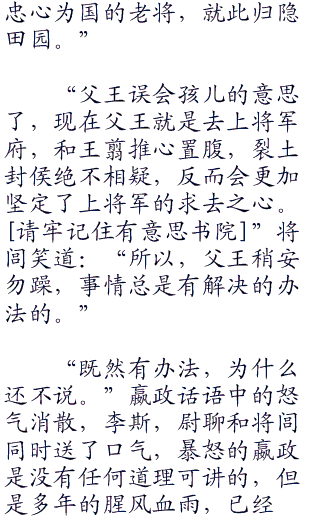 忠心为国的老将，就此归隐
田园。”
“父王误会孩儿的意思
了，现在父王就是去上将军
府，和王翦推心置腹，裂土
封侯绝不相疑，反而会更加
坚定了上将军的求去之心。
[请牢记住有意思书院]”将
闾笑道：“所以，父王稍安
勿躁，事情总是有解决的办
法的。”
“既然有办法，为什么
还不说。”嬴政话语中的怒
气消散，李斯，尉聊和将闾
同时送了口气，暴怒的嬴政
是没有任何道理可讲的，但
是多年的腥风血雨，已经